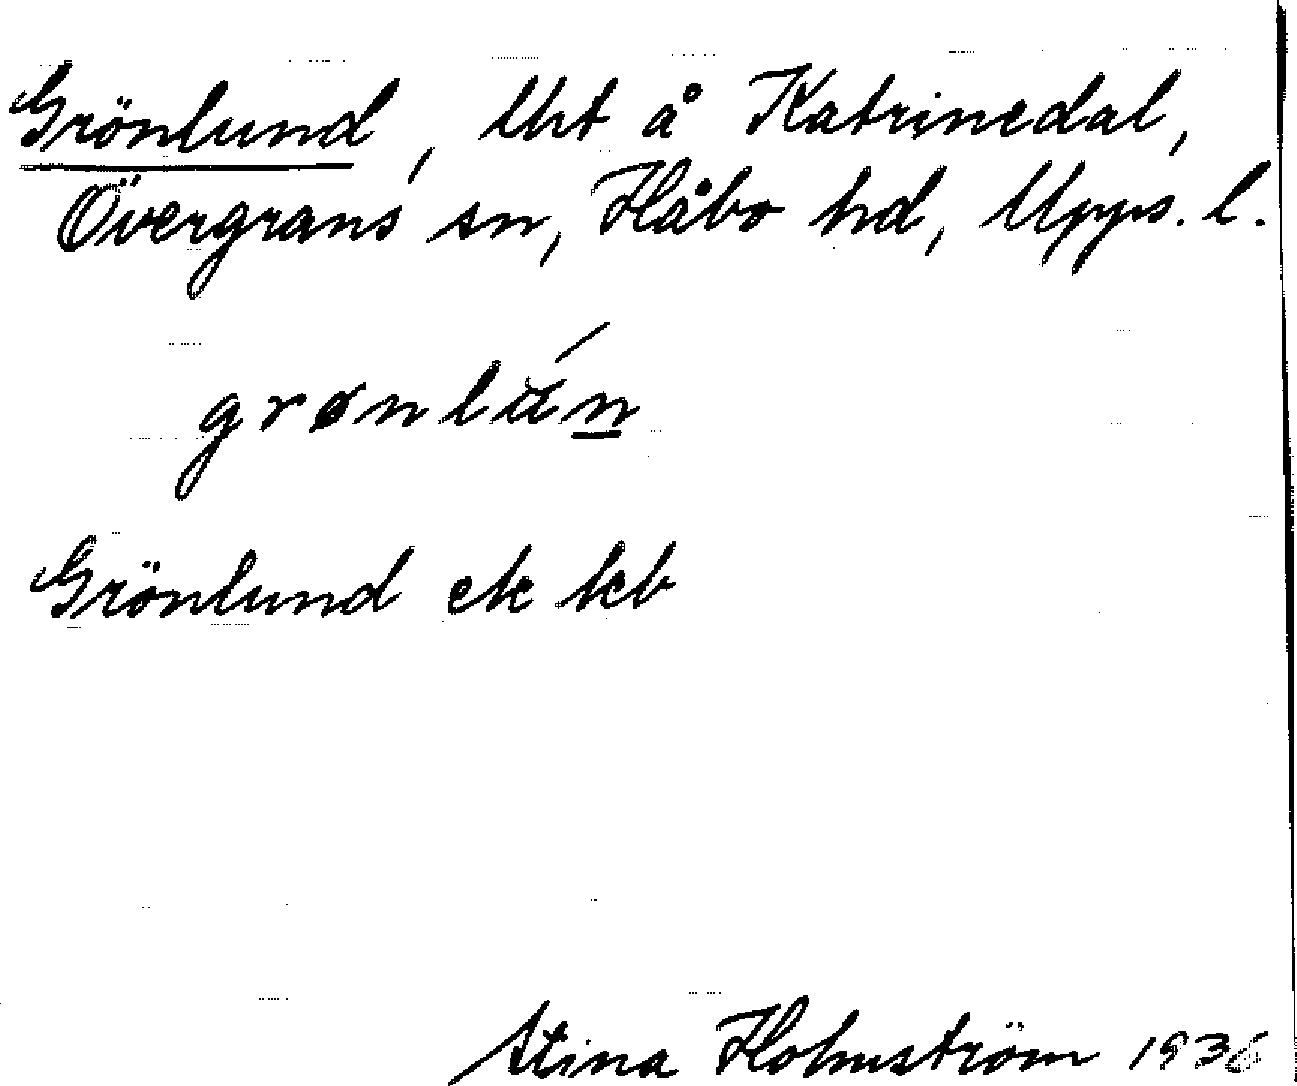 Grönlund, Urt å Katrinedal,
Övergrans sn, Håbo hd, Upps. l.
grønlún
Grönlund ek kb
Stina Holmström 1936